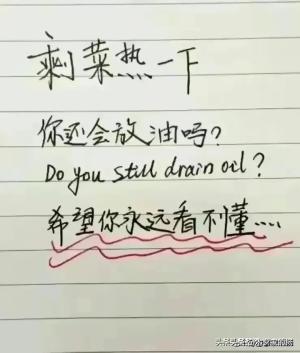 剩菜热一下
你还会放油吗?
Do you still drain oil?
希望你永远看不懂....